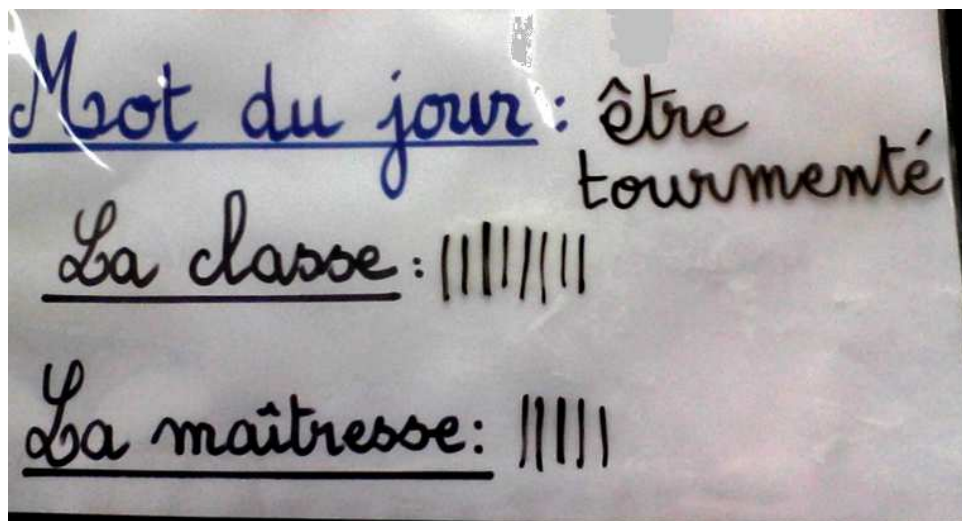 Mot du jour : être
tourmenté
La classe : ||||||||
La maîtresse : |||||